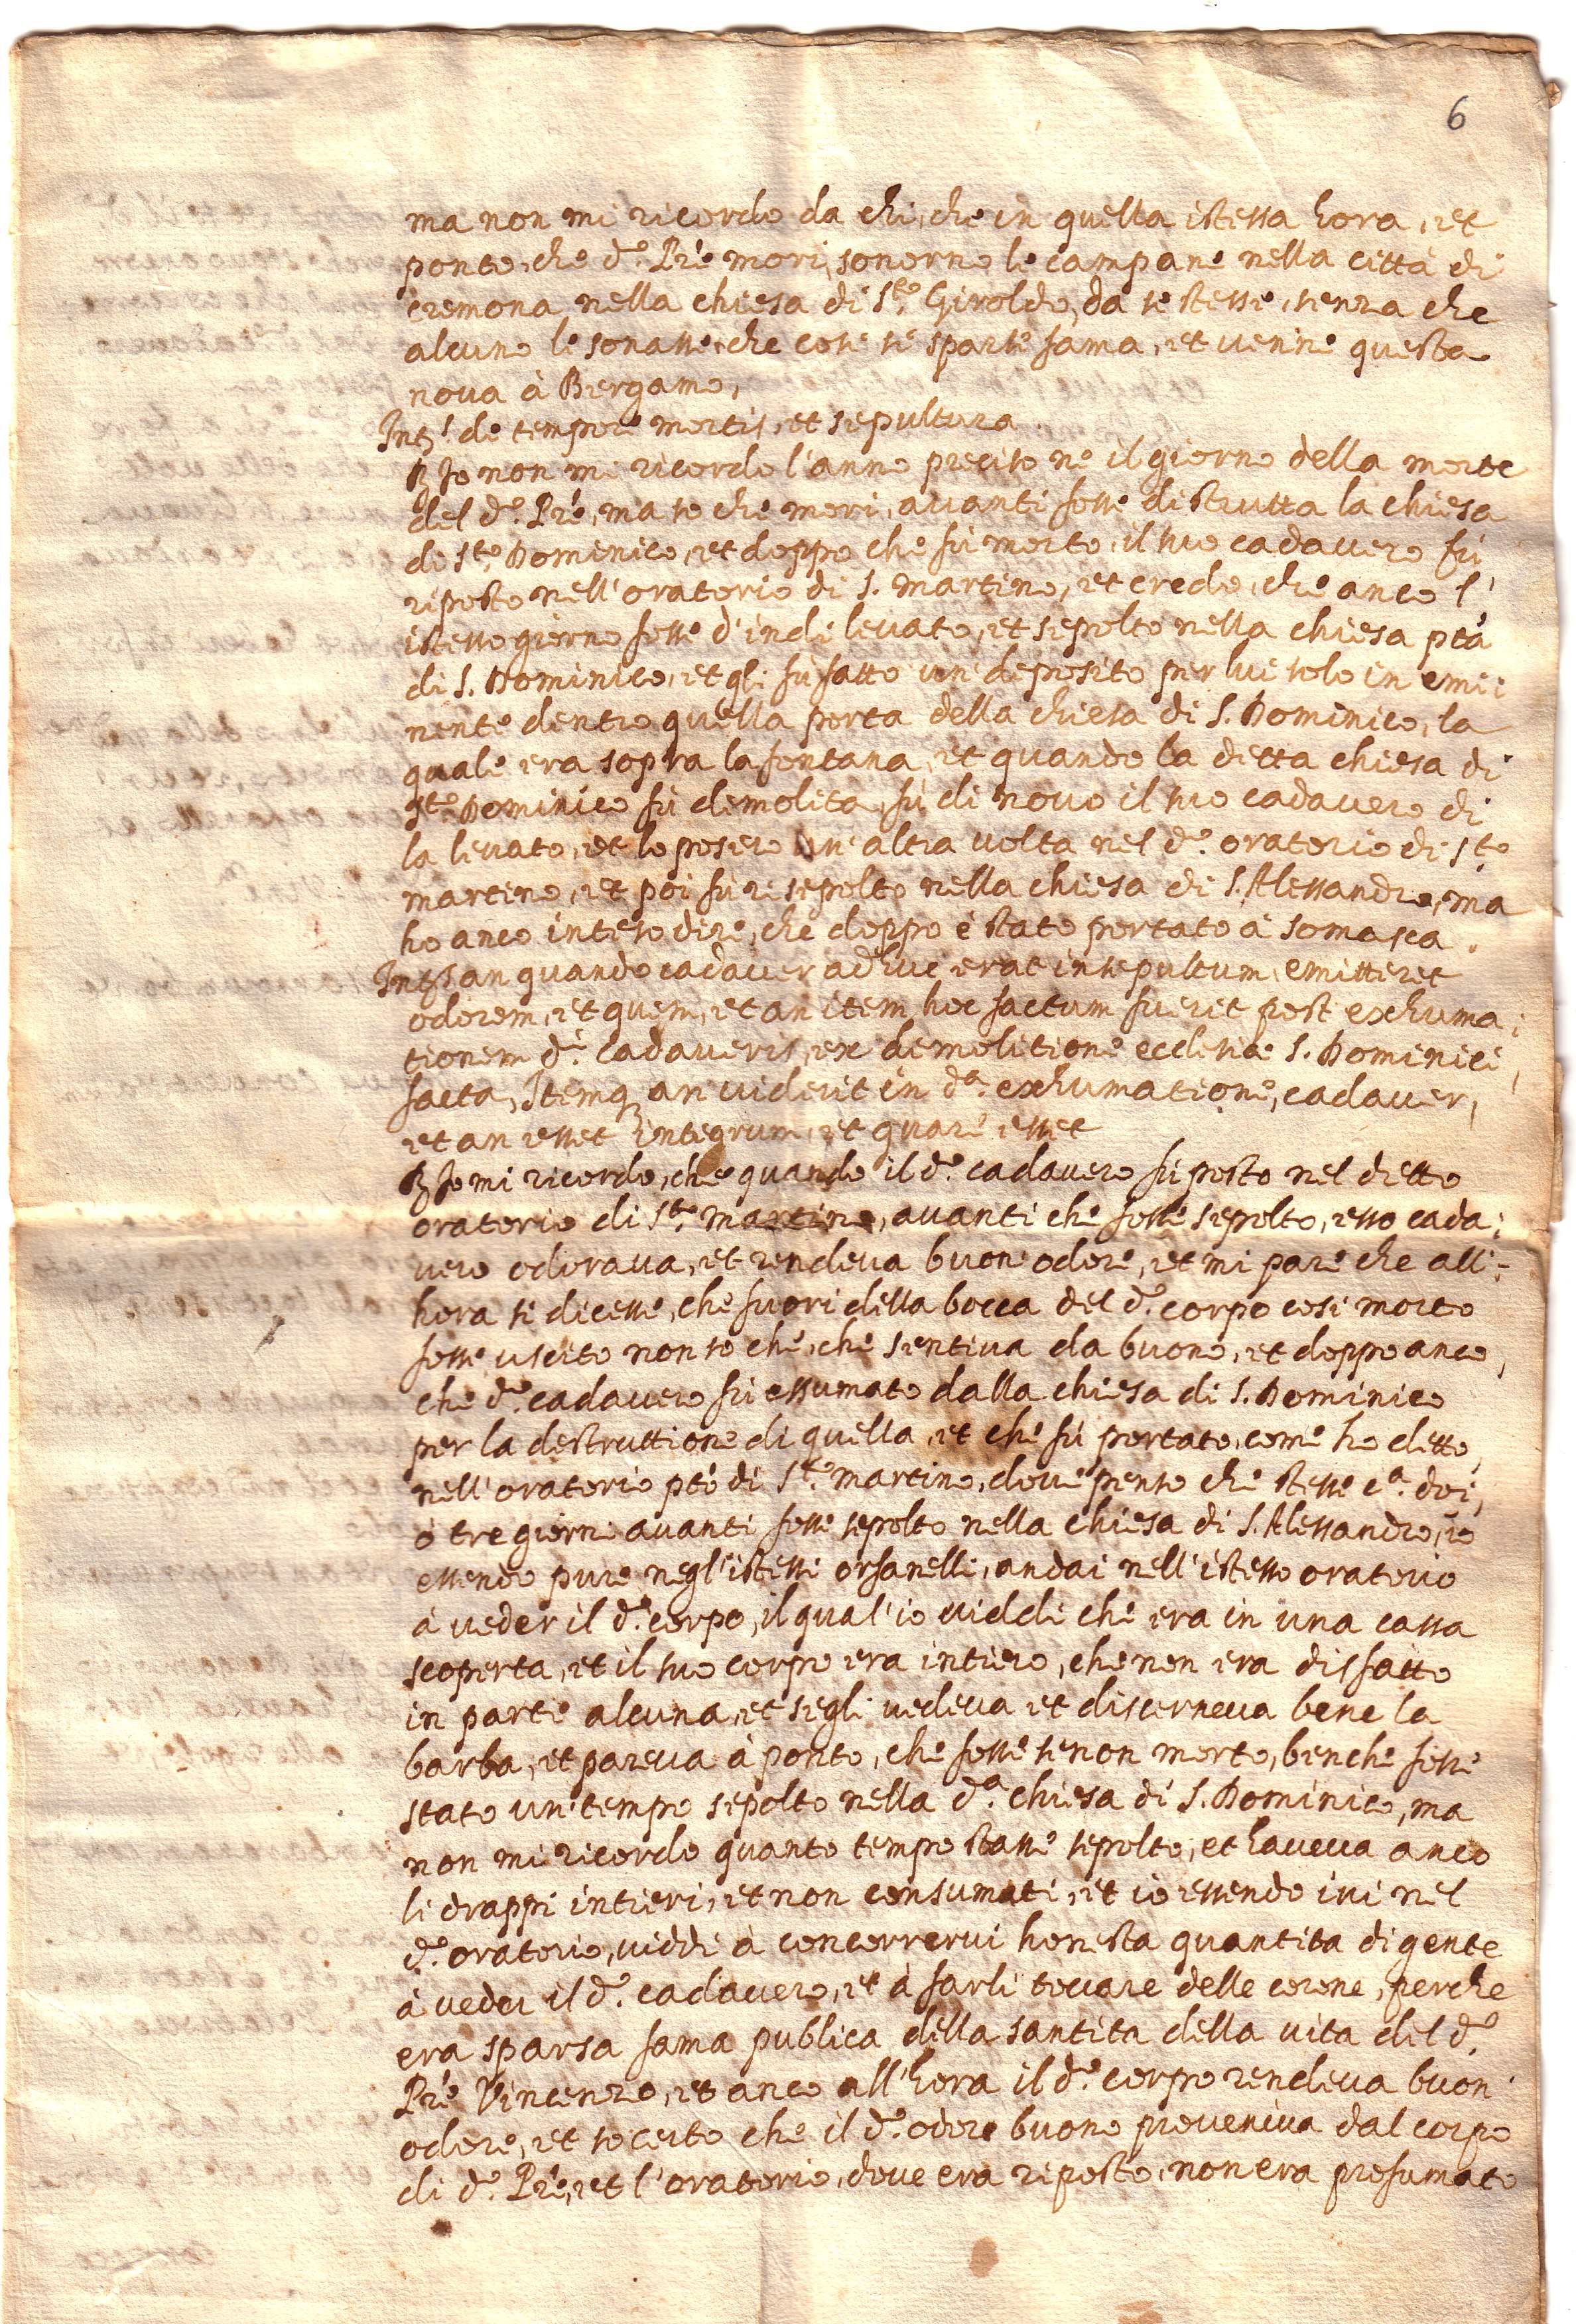 6
ma non mi ricordo da chi, che in quella istessa hora, et
ponto, che d.º Prē morì, sonorno le campane nella città di
Cremona nella chiesa di S.to Giroldo, da se stesse, senza che
alcuno le sonasse, che così se sparse fama, et venne questa
nova à Bergamo,
Int.s de tempore mortis, et sepultura.
R. Io non mi ricordo l'anno preciso ne il giorno della morte
del d.º Prē, ma so che morì, avanti fosse distrutta la chiesa
di S.to Dominico, et doppo che fù morto, il suo cadavero fù
riposto nell'oratorio di S. Martino, et credo, che anco l'
istesso giorno fosse d'indi levato, et sepolto nella chiesa p̄ta
di S. Dominico, et gli fù fatto un' deposito per lui solo in emi:
nente dentro quella porta della chiesa di S. Dominico, la
quale era sopra la fontana, et quando la detta chiesa di
S.to Dominico fù demolita, fù di novo il suo cadavero di
la levato, et lo posero un'altra volta nel d.º oratorio di S.to
Martino, et poi fù risepolto nella chiesa di S. Alessandro, ma
ho anco inteso dire, che doppo è stato portato à Somasca.
Int.s an quando cadaver adhuc erat insepultum, emitteret
odorem, et quem, et an item hoc factum fuerit post exhuma:
tionem d.i cadaveris, ex demolitione ecclesiæ S. Dominici
facta, Itemq. an viderit in d.a exhumatione, cadaver,
et an esset integrum, et quare esset
R. Io mi ricordo, che quando il d.º cadavero fù posto nel detto
oratorio di S.to Martino, avanti che fosse sepolto, esso cada:
vero odorava, et rendeva buon' odore, et mi pare che all'
hora si dicesse, che fuori della bocca del d.º corpo così morto
fosse uscito non so che, che sentiva da buono, et doppo anco,
che d.º cadavero fù essumato dalla chiesa di S. Dominico
per la destruttione di quella, et che fù portato, come ho detto,
nell'oratorio p̄to di S.to Martino, dove penso che stesse c.a doi,
ò tre giorni avanti fosse sepolto nella chiesa di S. Alessandro, io
essendo pure negl'istessi orfanelli, andai nell'istesso oratorio
à veder il d.º corpo, il qual'io viddi che era in una cassa
scoperta, et il suo corpo era intiero, che non era disfatto
in parte alcuna, et segli vedeva et discerneva bene la
barba, et pareva à ponto, che fosse se non morto, benche fosse
stato un' tempo sepolto nella d.a chiesa di S. Dominico, ma
non mi ricordo quanto tempo stasse sepolto, et haveva anco
li drappi intieri, et non consumati, et io essendo ivi nel
d.º oratorio, viddi à concorrervi honesta quantita di gente
à veder il d.º cadavero, et à farli toccare delle corone, perche
era sparsa fama publica della santita della vita del d.º
Prē Vincenzo, et anco all'hora il d.º corpo rendeva buon'
odore, et so certo che il d.º odore buono proveniva dal corpo
di d.º Prē, et l'oratorio, dove era riposto, non era profumato